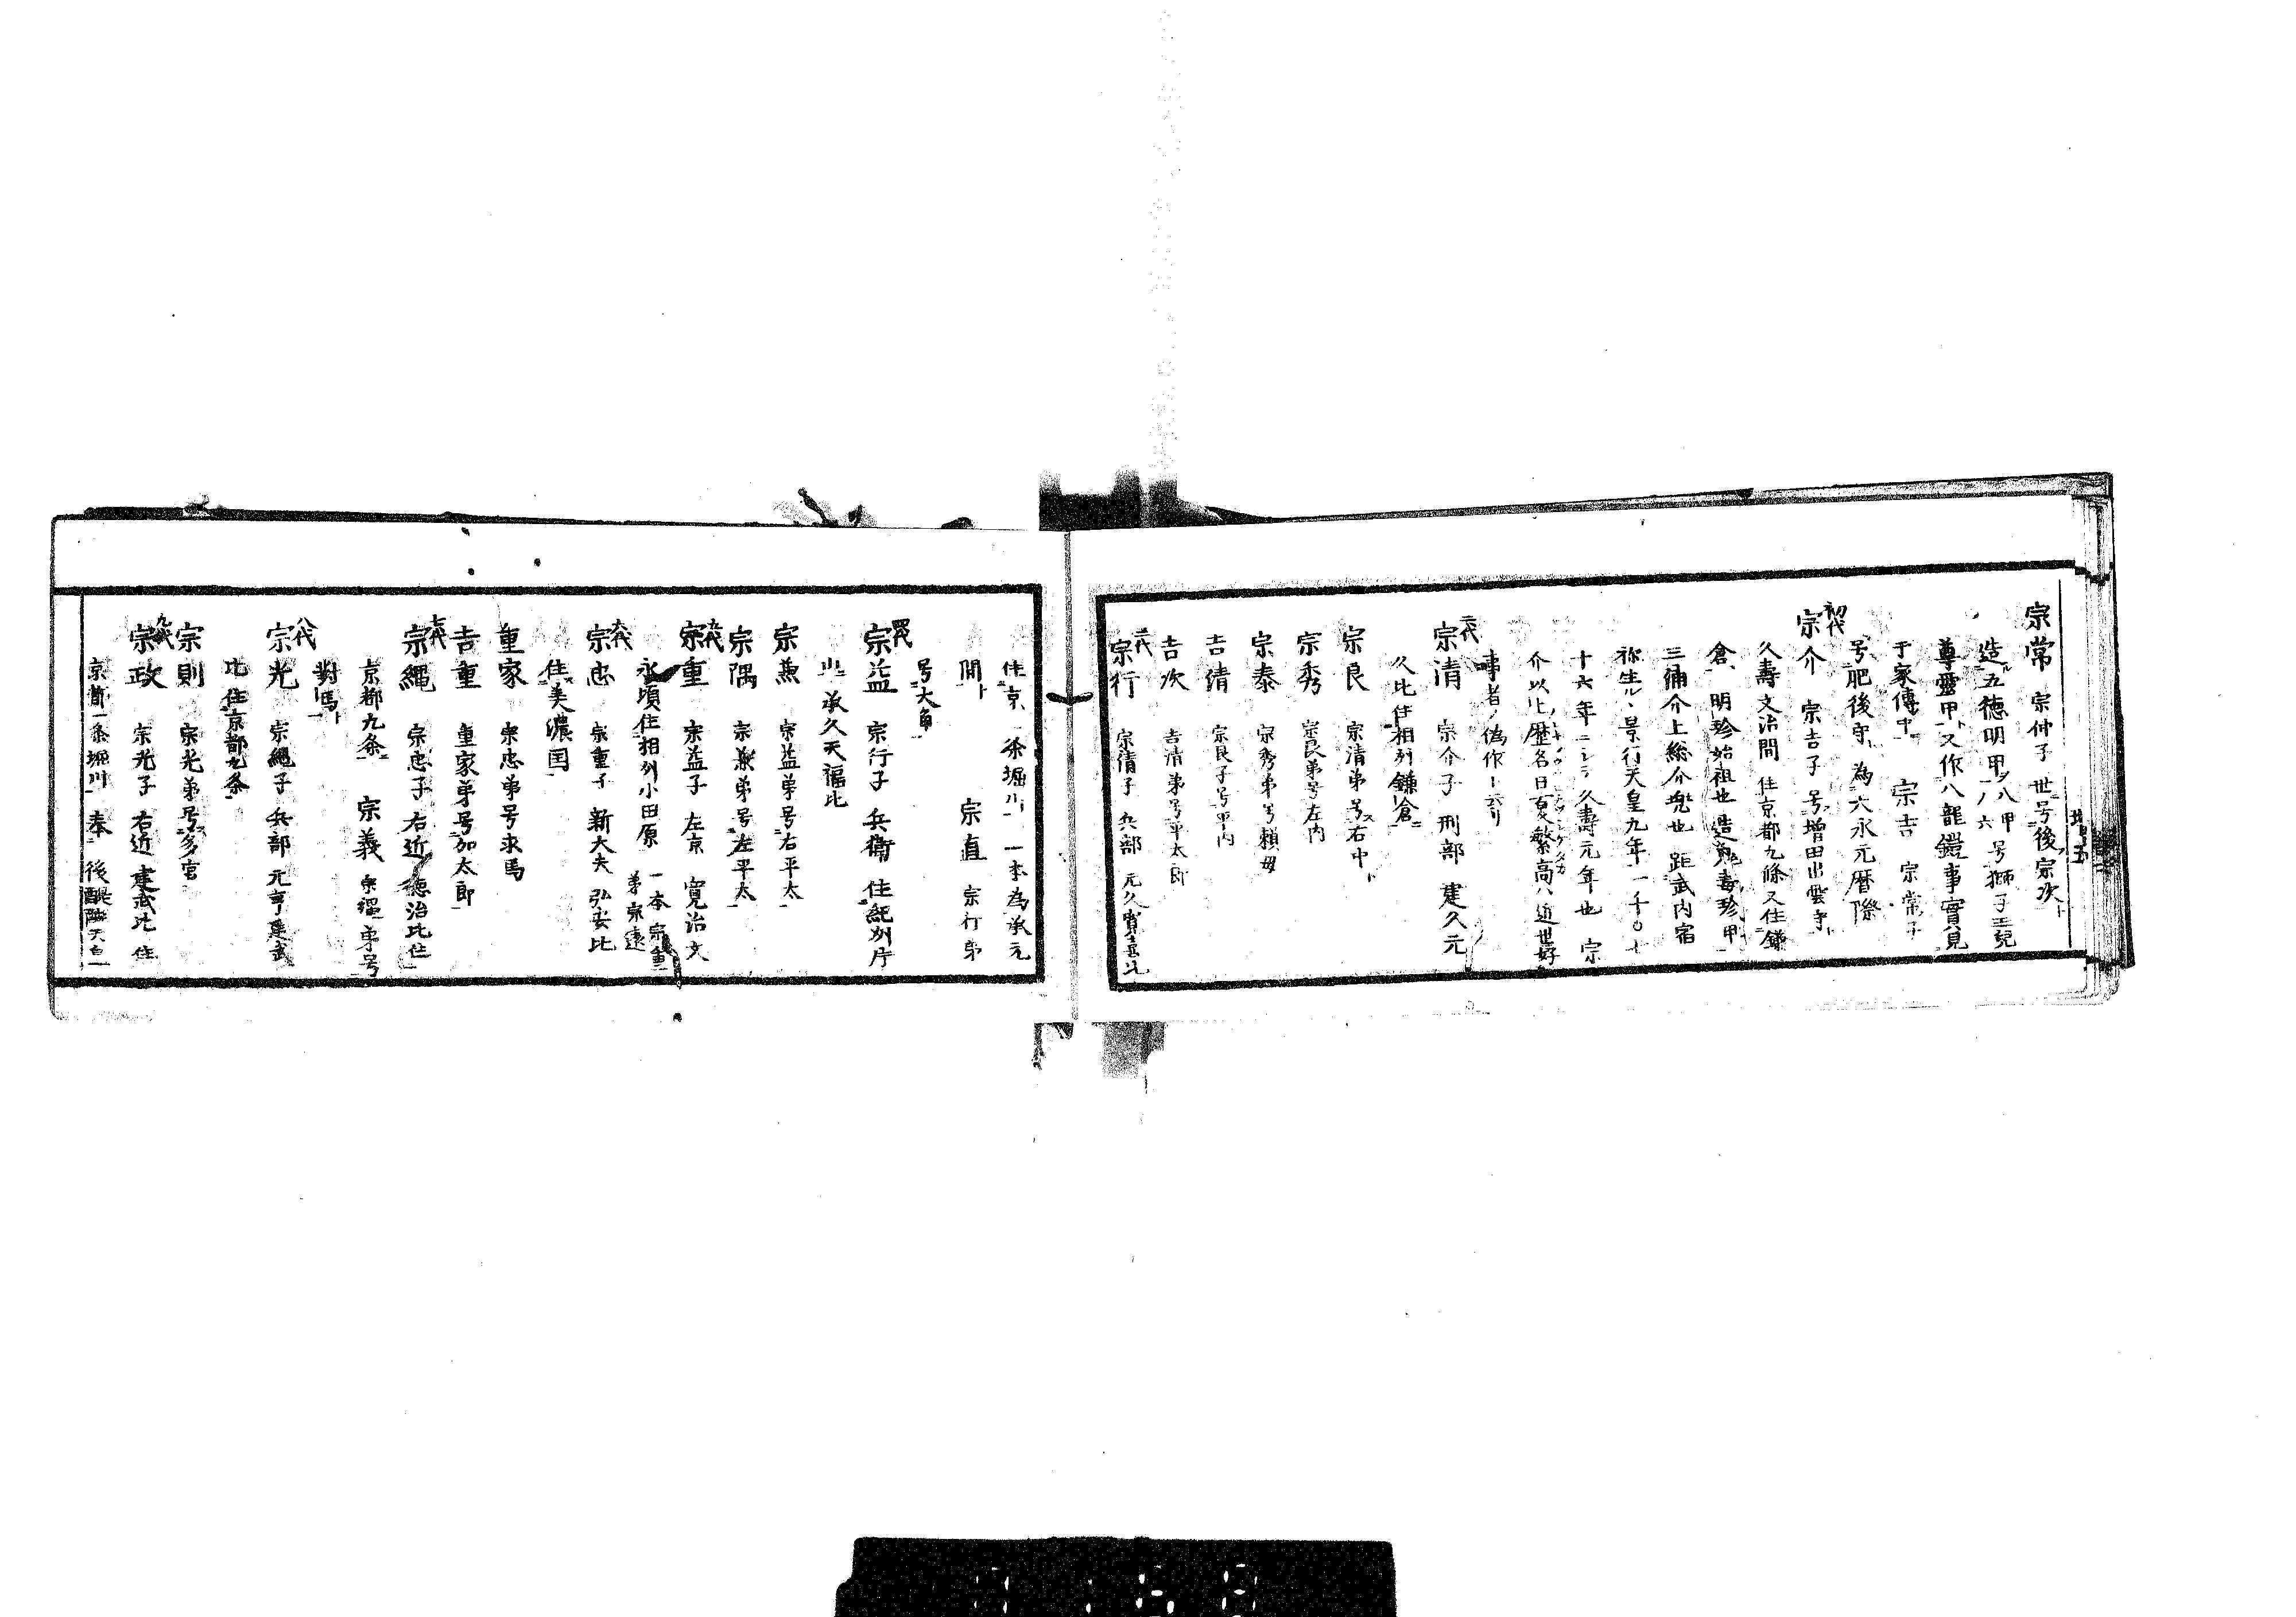 宗常 宗仲子 世ニ号後宗次ト
造ル五徳明甲ヲ 八甲ノ一ノ六号獅子王冠
尊霊甲ト又作八龍鎧事實見
于家傳中 宗吉 宗常子
号肥後守 為六永元暦際
初代
宗介 宗吉子 号増田出雲守ト
久壽文治間 住京都九條又住鎌
倉 明珍始祖也造
三浦介上総介兜也 距武内宿
祢生ル景行天皇九年一千〇七
十六年ニシテ久壽元年也 宗
介以比歴名曰 繁高ハ近世好
事者ノ偽作ト云リ
二代
宗清 宗介子 刑部 建久元
久比住相州鎌倉ニ
宗良 宗清弟号右中ト
宗秀 宗良弟号左内
宗泰 宗秀弟号頼母
吉清 宗良子号平内
吉次 吉清弟号平太郎
三代
宗行 宗清子 兵部 元久寛喜比
住京一条堀川 一本為承元
間ト 宗直 宗行弟
号大角
四代
宗益 宗行子 兵衛 住紀州片
山 承久天福比
宗兼 宗益弟号右平太
宗隅 宗兼弟号左平太
五代
宗重 宗益子 左京 寛治文
永頃住相州小田原 一本宗重弟宗遠
六代
宗忠 宗重子 新大夫 弘安比
住美濃国
重家 宗忠弟号求馬
吉重 重家弟号加太郎
七代
宗縄 宗忠子 右近 徳治比住
京都九条 宗義 宗縄弟号
對馬ト
八代
宗光 宗縄子 兵部 元亨建武
比 住京都九条
宗則 宗光弟号多宮
九代
宗政 宗光子 右近 建武比 住
京都一条堀川 奉 後醍醐天皇